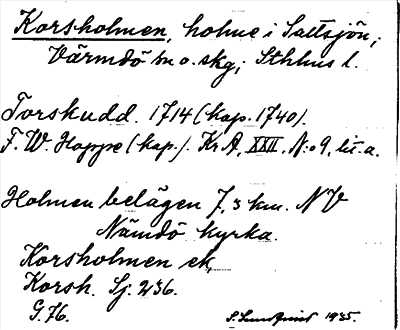 Korsholmen, holme i Saltsjön;
Värmdö sn o. skg; Sthlms l.
Torskudd. 1714 (kop. 1740).
F. W. Hoppe (kop.). Kr A, XXII, N:o 9, lit. a.
Holmen belägen 7,3 km. NV
Nämdö kyrka.
Korsholmen ek.
Korsh. Sj. 236.
G. 76.
S. Sundquist 1935.